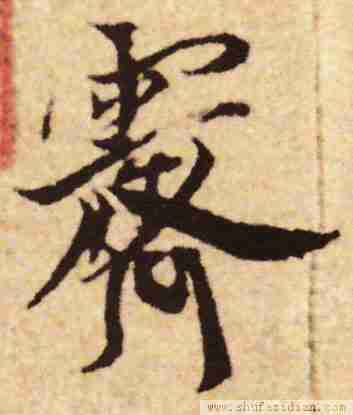 霽
www.shufazidian.com